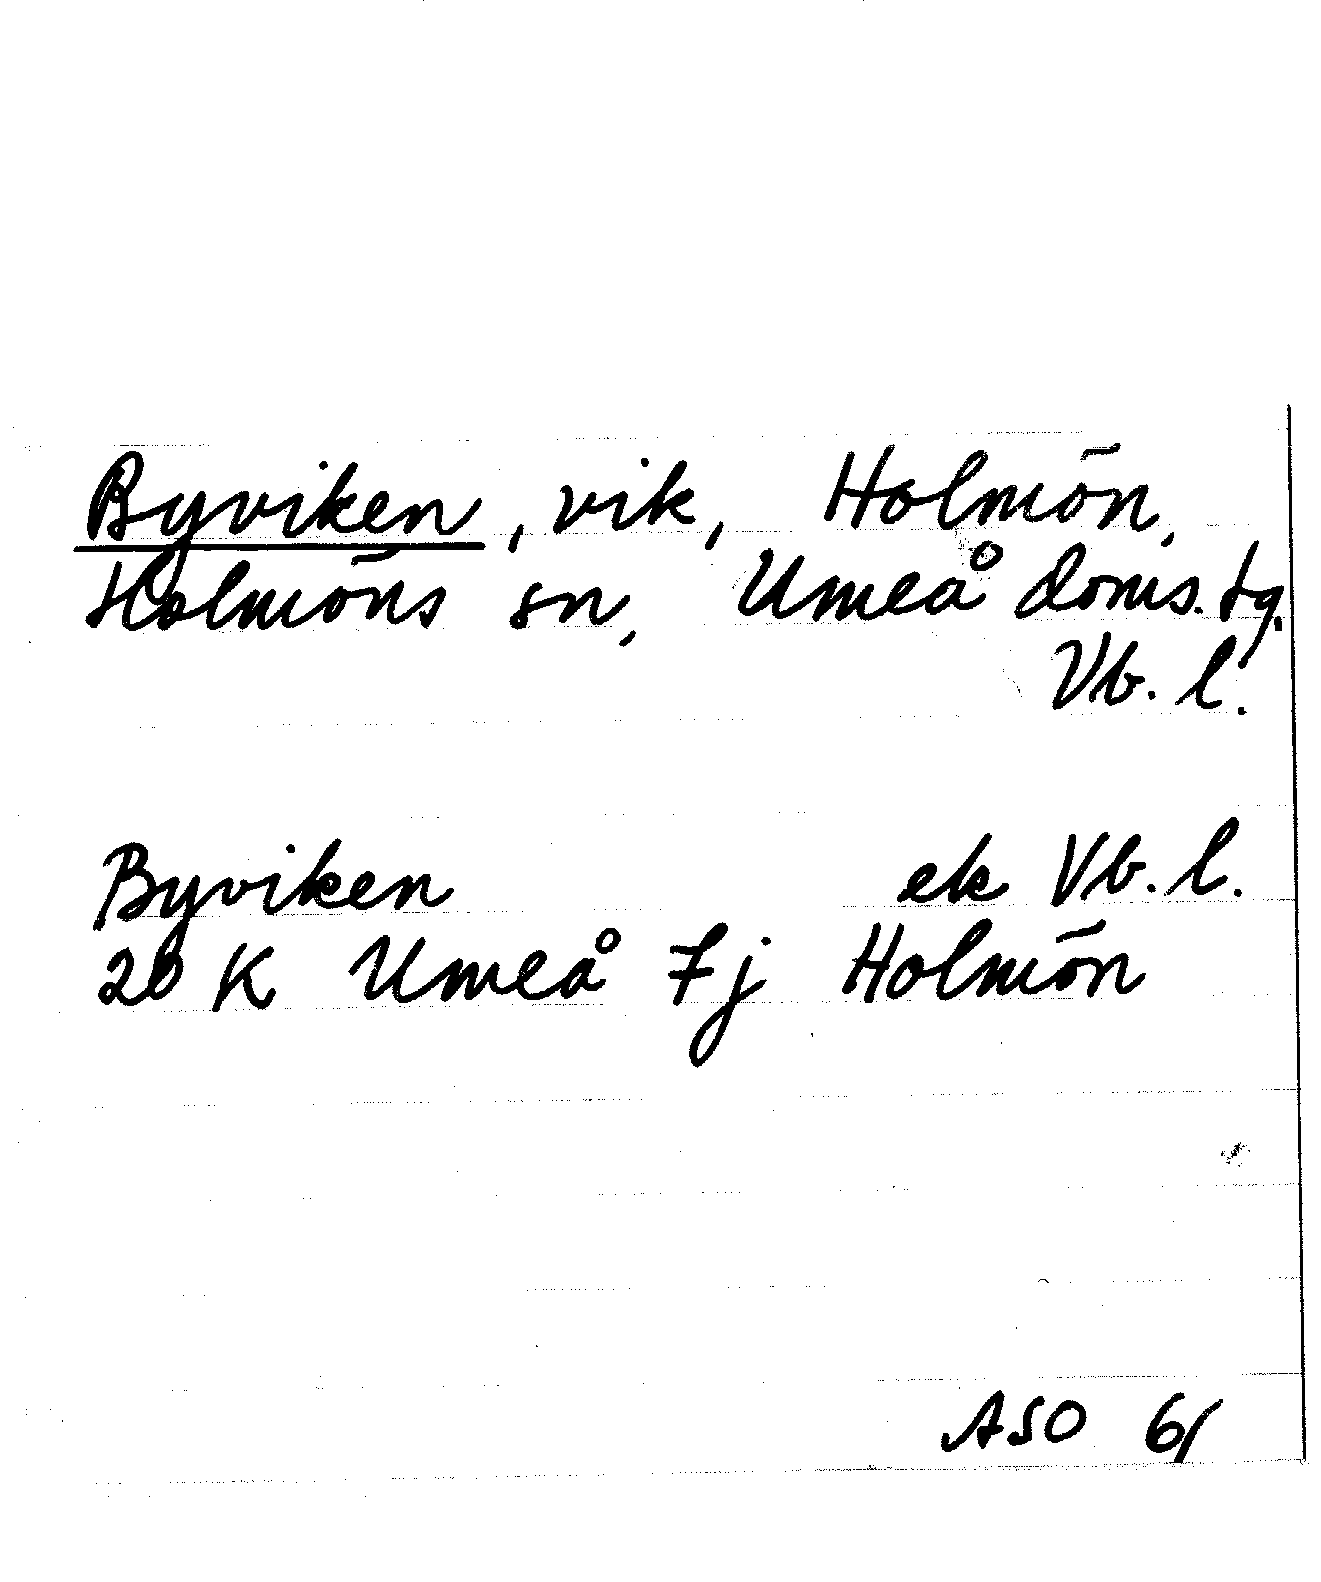 Byviken, vik, Holmön,
Holmöns sn, Umeå doms. tg.
Vb. l.
Byviken ek Vb. l.
20 K Umeå 7j Holmön
ASO 61